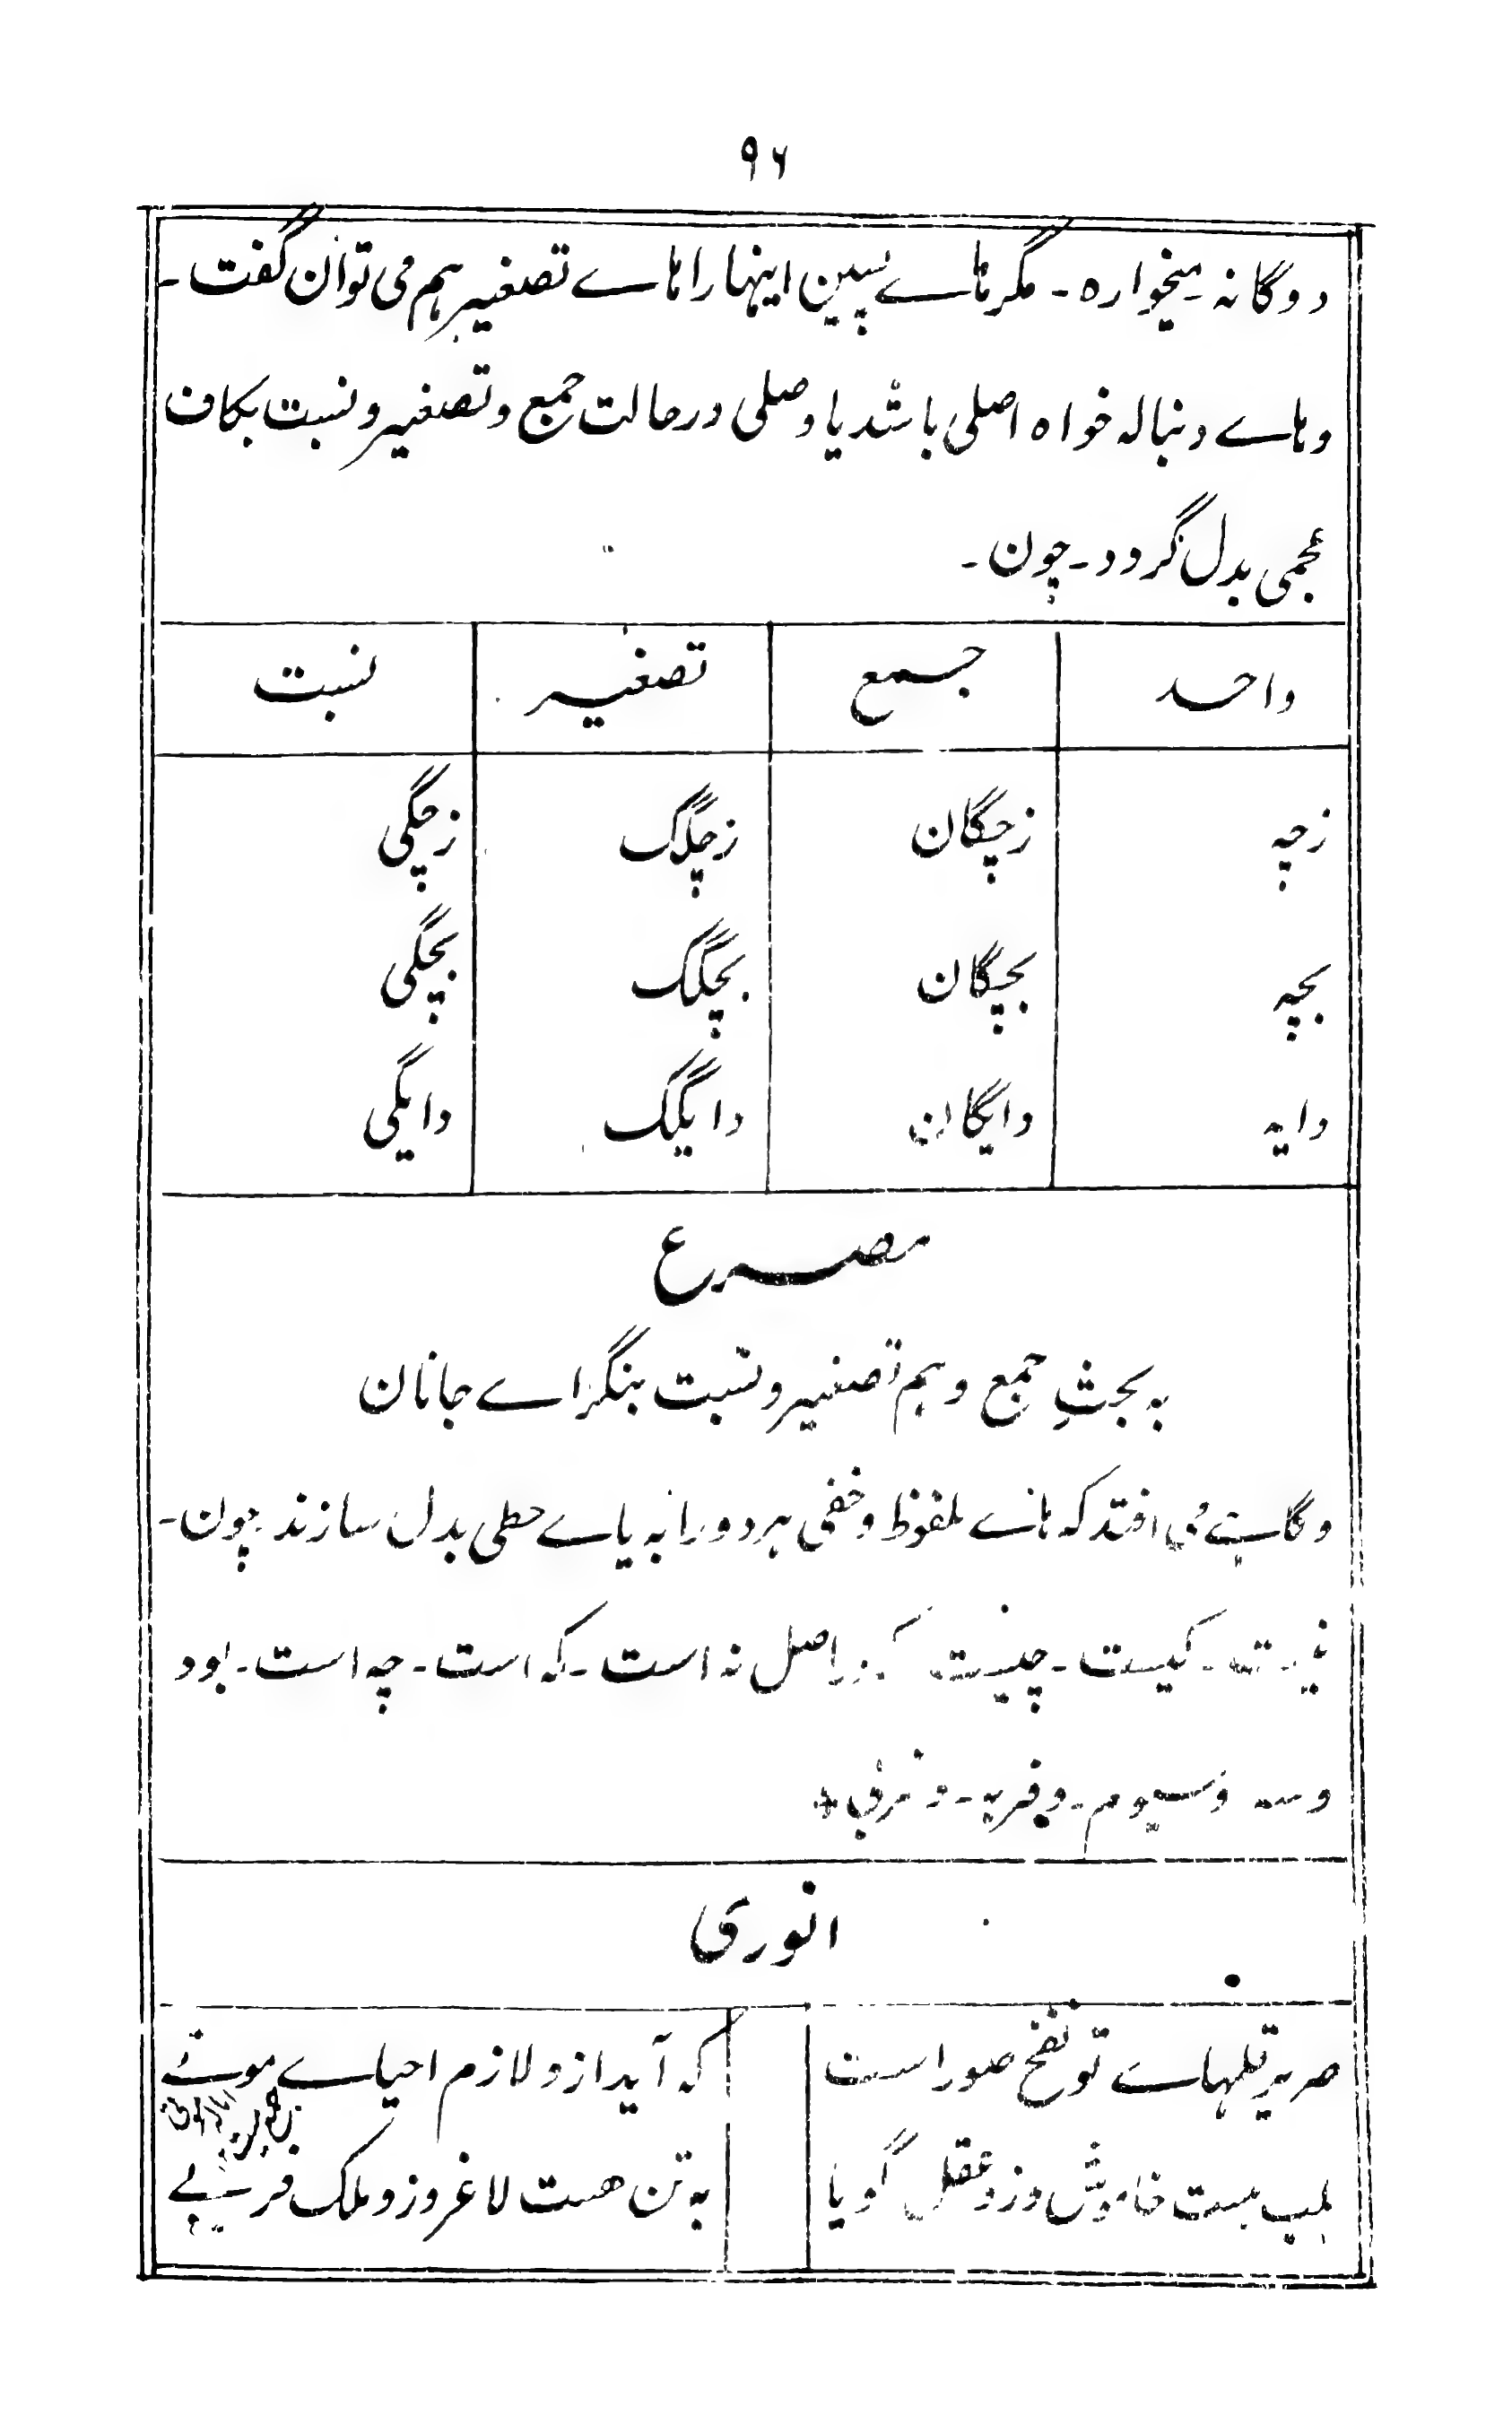 ۹۶
دوگانه ـ میخواره ـ مگر هاے پسین اینها را هاے تصغیر هم می توان گفت ـ
و هاے دنباله خواه اصلی باشد یا وصلی در حالت جمع و تصغیر و نسبت بکاف
عجمی بدل گردد ـ چون ـ
واحد جمع تصغیر نسبت
زچه زچگان زچگک زچگی
بچه بچگان بچگک بچگی
دایه دایگان دایگک دایگی
مصرع
به بحثِ جمع و هم تصغیر و نسبت بنگر اے جانان
و گاہے می افتد که هاے ملفوظ و خفی هر دو را به یاے حطی بدل سازند چون ـ
نیست ـ کیست ـ چیست که در اصل نه است ـ که است ـ چه است ـ بود
و سه و سیوم ـ و فربه ـ و فربی
انوری
صریر قلمهاے تو نفخ صور است که آید ازو لازم احیاے موتے
بلب هست خاموش وزو عقل گویا به تن هست لاغر وزو ملک فربے